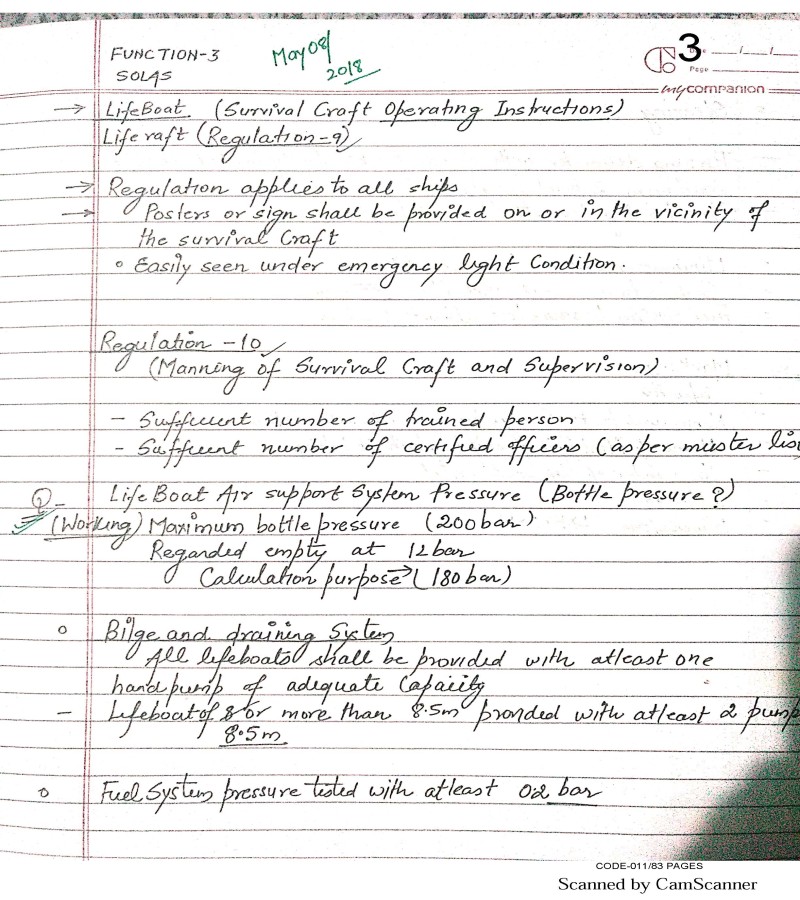 FUNCTION-3
SOLAS
May 08/
2018
3
Date
Page
mycompanion
→ LifeBoat (Survival Craft Operating Instructions)
Life raft (Regulation-9)
→ Regulation applies to all ships
→ Posters or sign shall be provided on or in the vicinity of
the survival Craft
∘ Easily seen under emergency light Condition.
Regulation -10
(Manning of Survival Craft and Supervision)
- Sufficient number of trained person
- Sufficent number of certified officers (as per muster lis
Q- LifeBoat Air support System Pressure (Bottle pressure?)
(Working) Maximum bottle pressure (200 bar)
Regarded empty at 12 bar
Calculation purpose → (180 bar)
∘ Bilge and draining System
All lifeboats shall be provided with atleast one
hand pump of adequate Capacity
- Lifeboat of 8 or more than 8.5m provided with atleast 2 pump
8.5m
∘ Fuel System pressure tested with atleast 0.2 bar
CODE-011/83 PAGES
Scanned by CamScanner